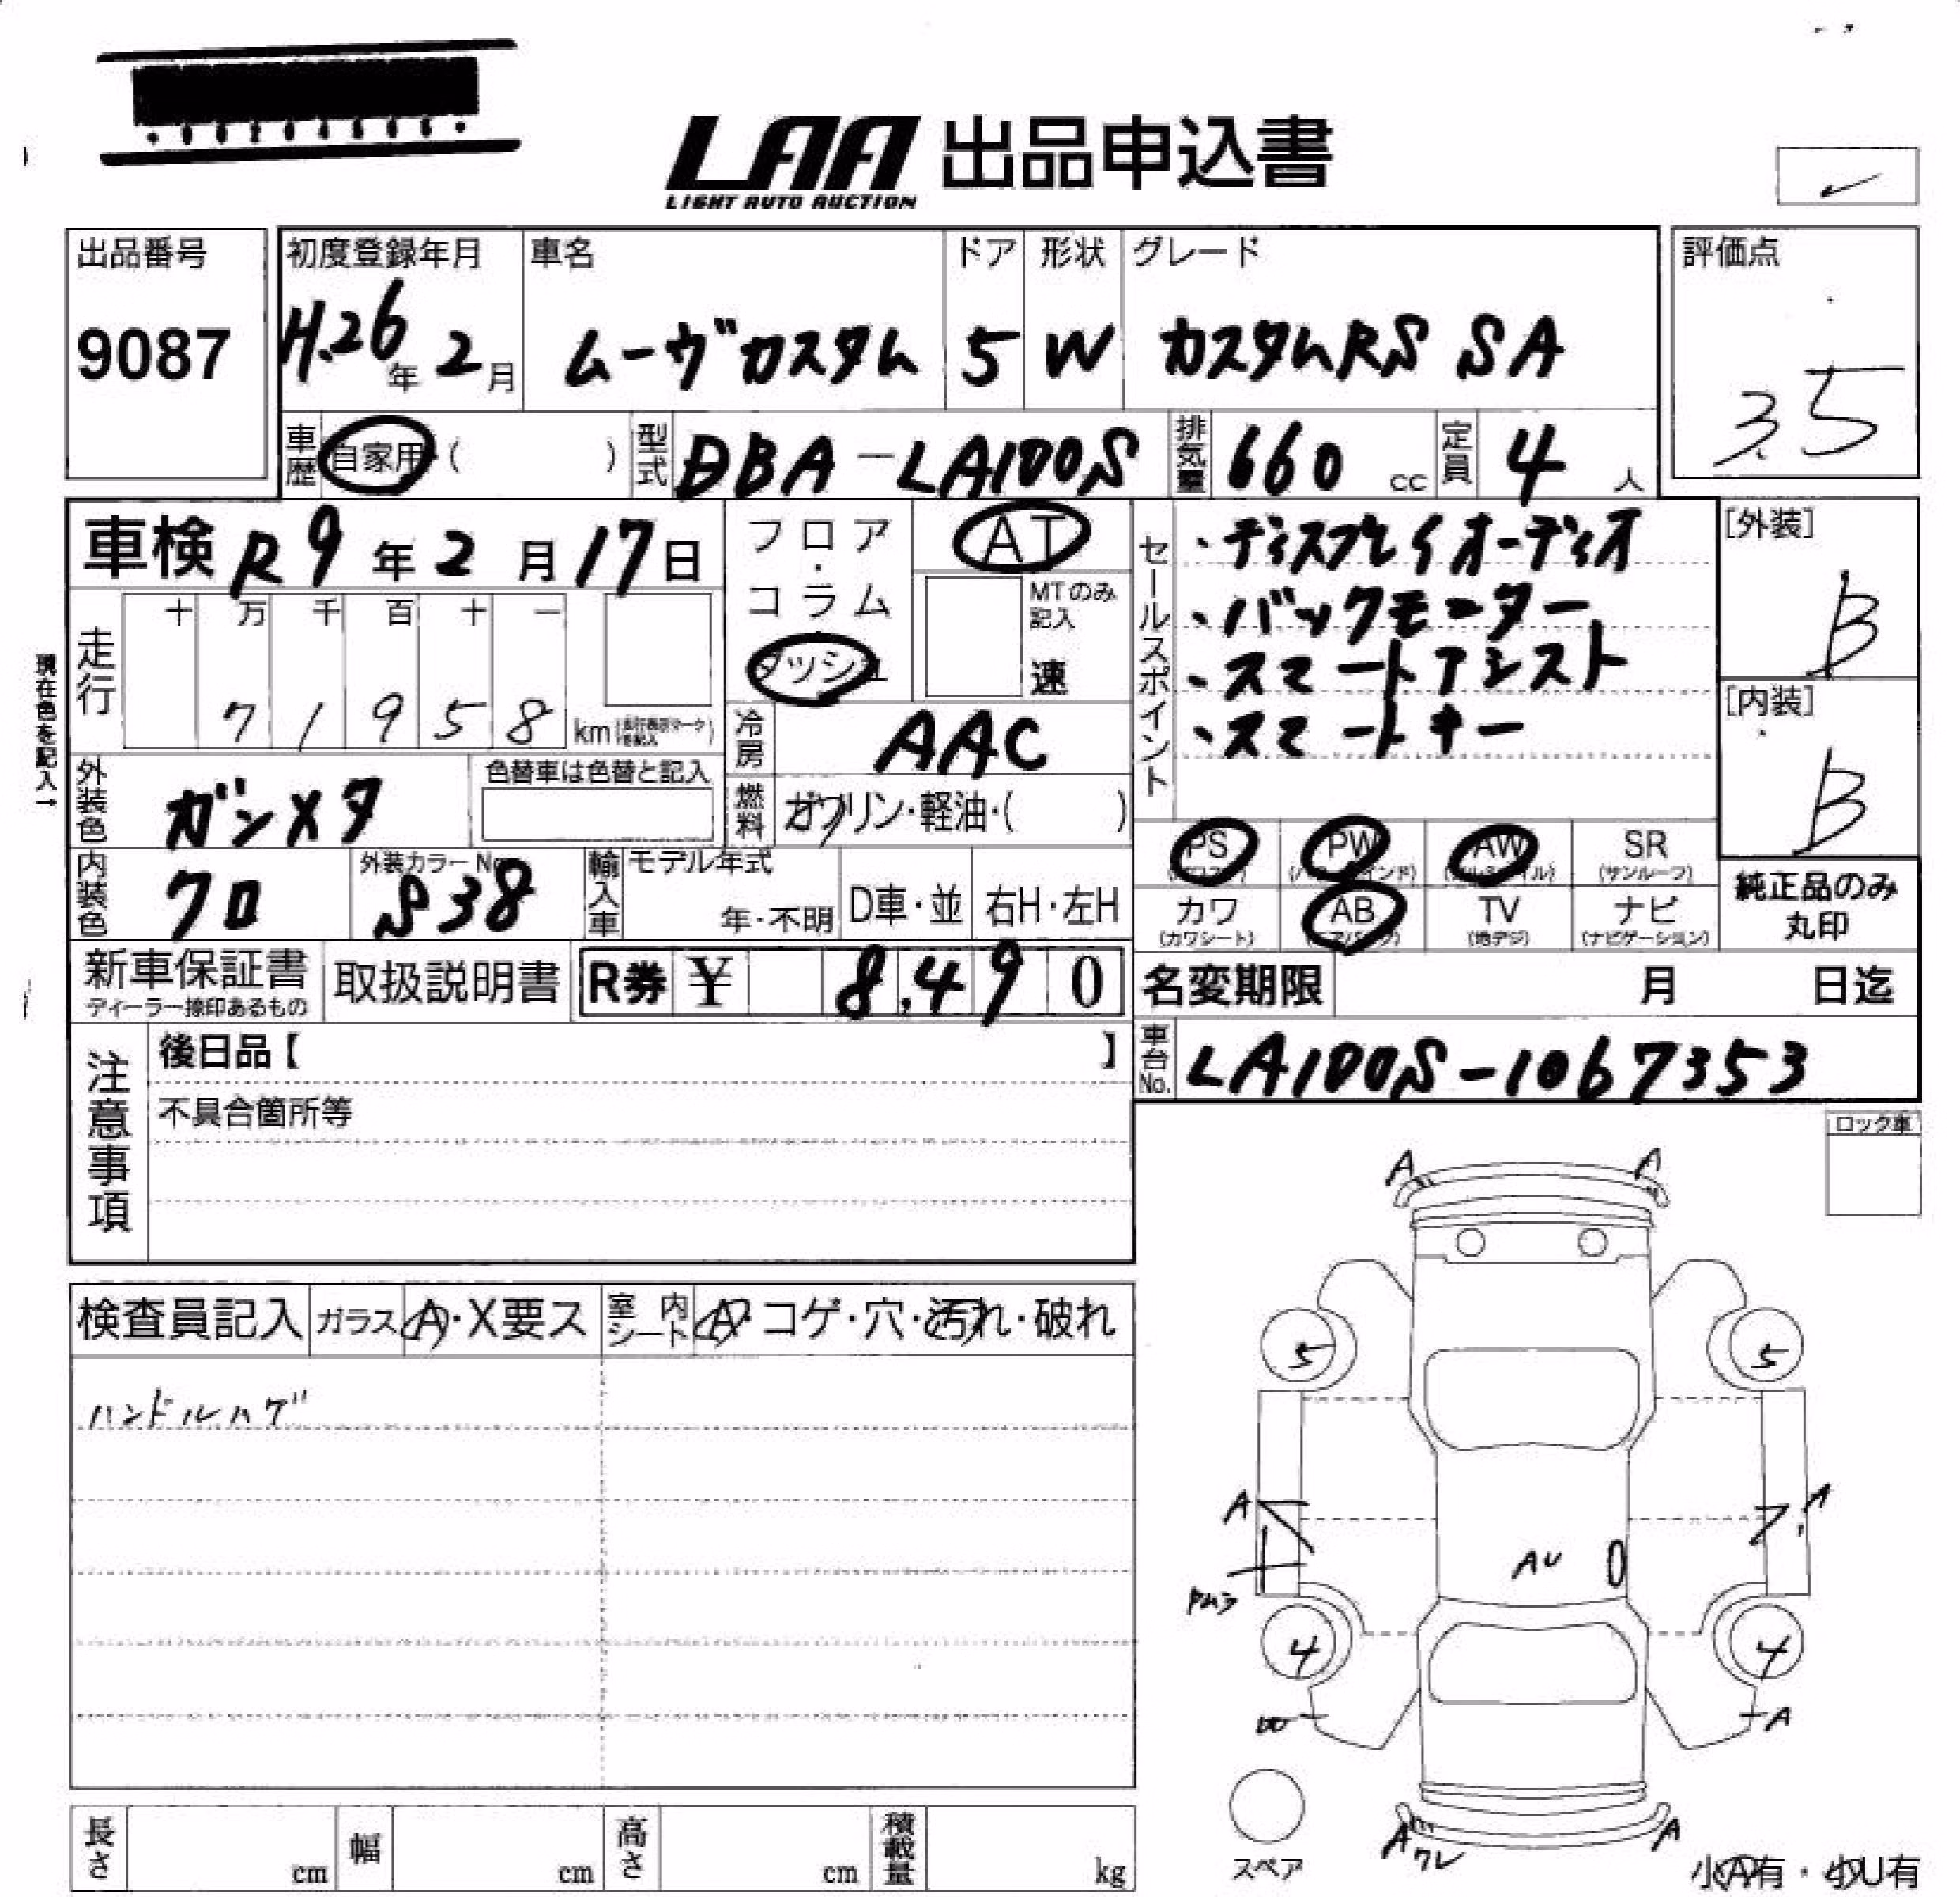 LAA 出品申込書
LIGHT AUTO AUCTION
出品番号
9087
初度登録年月
H.26年 2月
車名
ムーヴカスタム
ドア
5
形状
W
グレード
カスタムRS SA
評価点
3.5
車歴 自家用・( )
型式 DBA-LA100S
排気量 660 cc
定員 4 人
車検 R9年 2月 17日
現在色を記入→
走行
十 万 千 百 十 一
7 1 9 5 8 km
フロア・
コラム・
ダッシュ
AT
MTのみ
記入
速
冷房 AAC
燃料 ガソリン・軽油・( )
セールスポイント
・ディスプレイオーディオ
・バックモニター
・スマートアシスト
・スマートキー
[外装]
B
[内装]
B
外装色 ガンメタ
色替車は色替と記入
内装色 クロ
外装カラーNo.
S38
輸入車
モデル年式
年・不明
D車・並
右H・左H
PS
PW
AW
SR
(サンルーフ)
カワ
(カワシート)
AB
TV
(地デジ)
ナビ
(ナビゲーション)
純正品のみ
丸印
新車保証書
ディーラー捺印あるもの
取扱説明書
R券 ¥ 8,490
名変期限 月 日迄
車台No. LA100S-1067353
注意事項
後日品【 】
不具合箇所等
ロック車
検査員記入
ガラス A・X要ス
室内シート A・コゲ・穴・汚れ・破れ
ハンドルハゲ
A A
5 5
A A
AU
4 4
W A
A ワレ A
スペア
小A有・小U有
長さ cm
幅 cm
高さ cm
積載量 kg